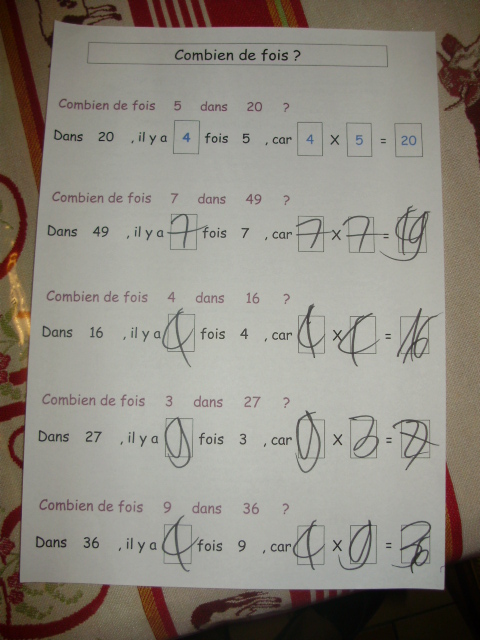 Combien de fois ?
Combien de fois 5 dans 20 ?
Dans 20 , il y a 4 fois 5 , car 4 X 5 = 20
Combien de fois 7 dans 49 ?
Dans 49 , il y a 7 fois 7 , car 7 X 7 = 49
Combien de fois 4 dans 16 ?
Dans 16 , il y a 4 fois 4 , car 4 X 4 = 16
Combien de fois 3 dans 27 ?
Dans 27 , il y a 9 fois 3 , car 9 X 3 = 27
Combien de fois 9 dans 36 ?
Dans 36 , il y a 4 fois 9 , car 4 X 9 = 36